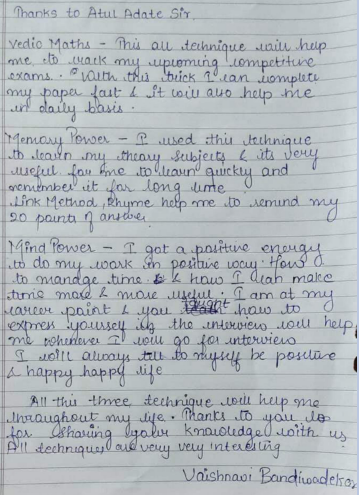 Thanks to Atul Adate Sir.
Vedic Maths - This all technique will help
me to crack my upcoming competitive
exams. With this trick I can complete
my paper fast & It will also help me
in daily basis.
Memory Power - I used this technique
to learn my theory subjects & its very
useful for me to learn quickly and
remember it for long time.
Link Method, Rhyme help me to remind my
20 points of answer.
Mind Power - I got a positive energy
to do my work in positive way. How
to manage time & how I can make
time more & more useful. I am at my
career point & you taught how to
express yourself in the interview will help
me whenever I will go for interview
I will always tell to myself be positive
& happy happy life
All this three technique will help me
throughout my life. Thanks to you
for sharing your knowledge with us
All techniques are very very interesting
Vaishnavi Bandiwadekar